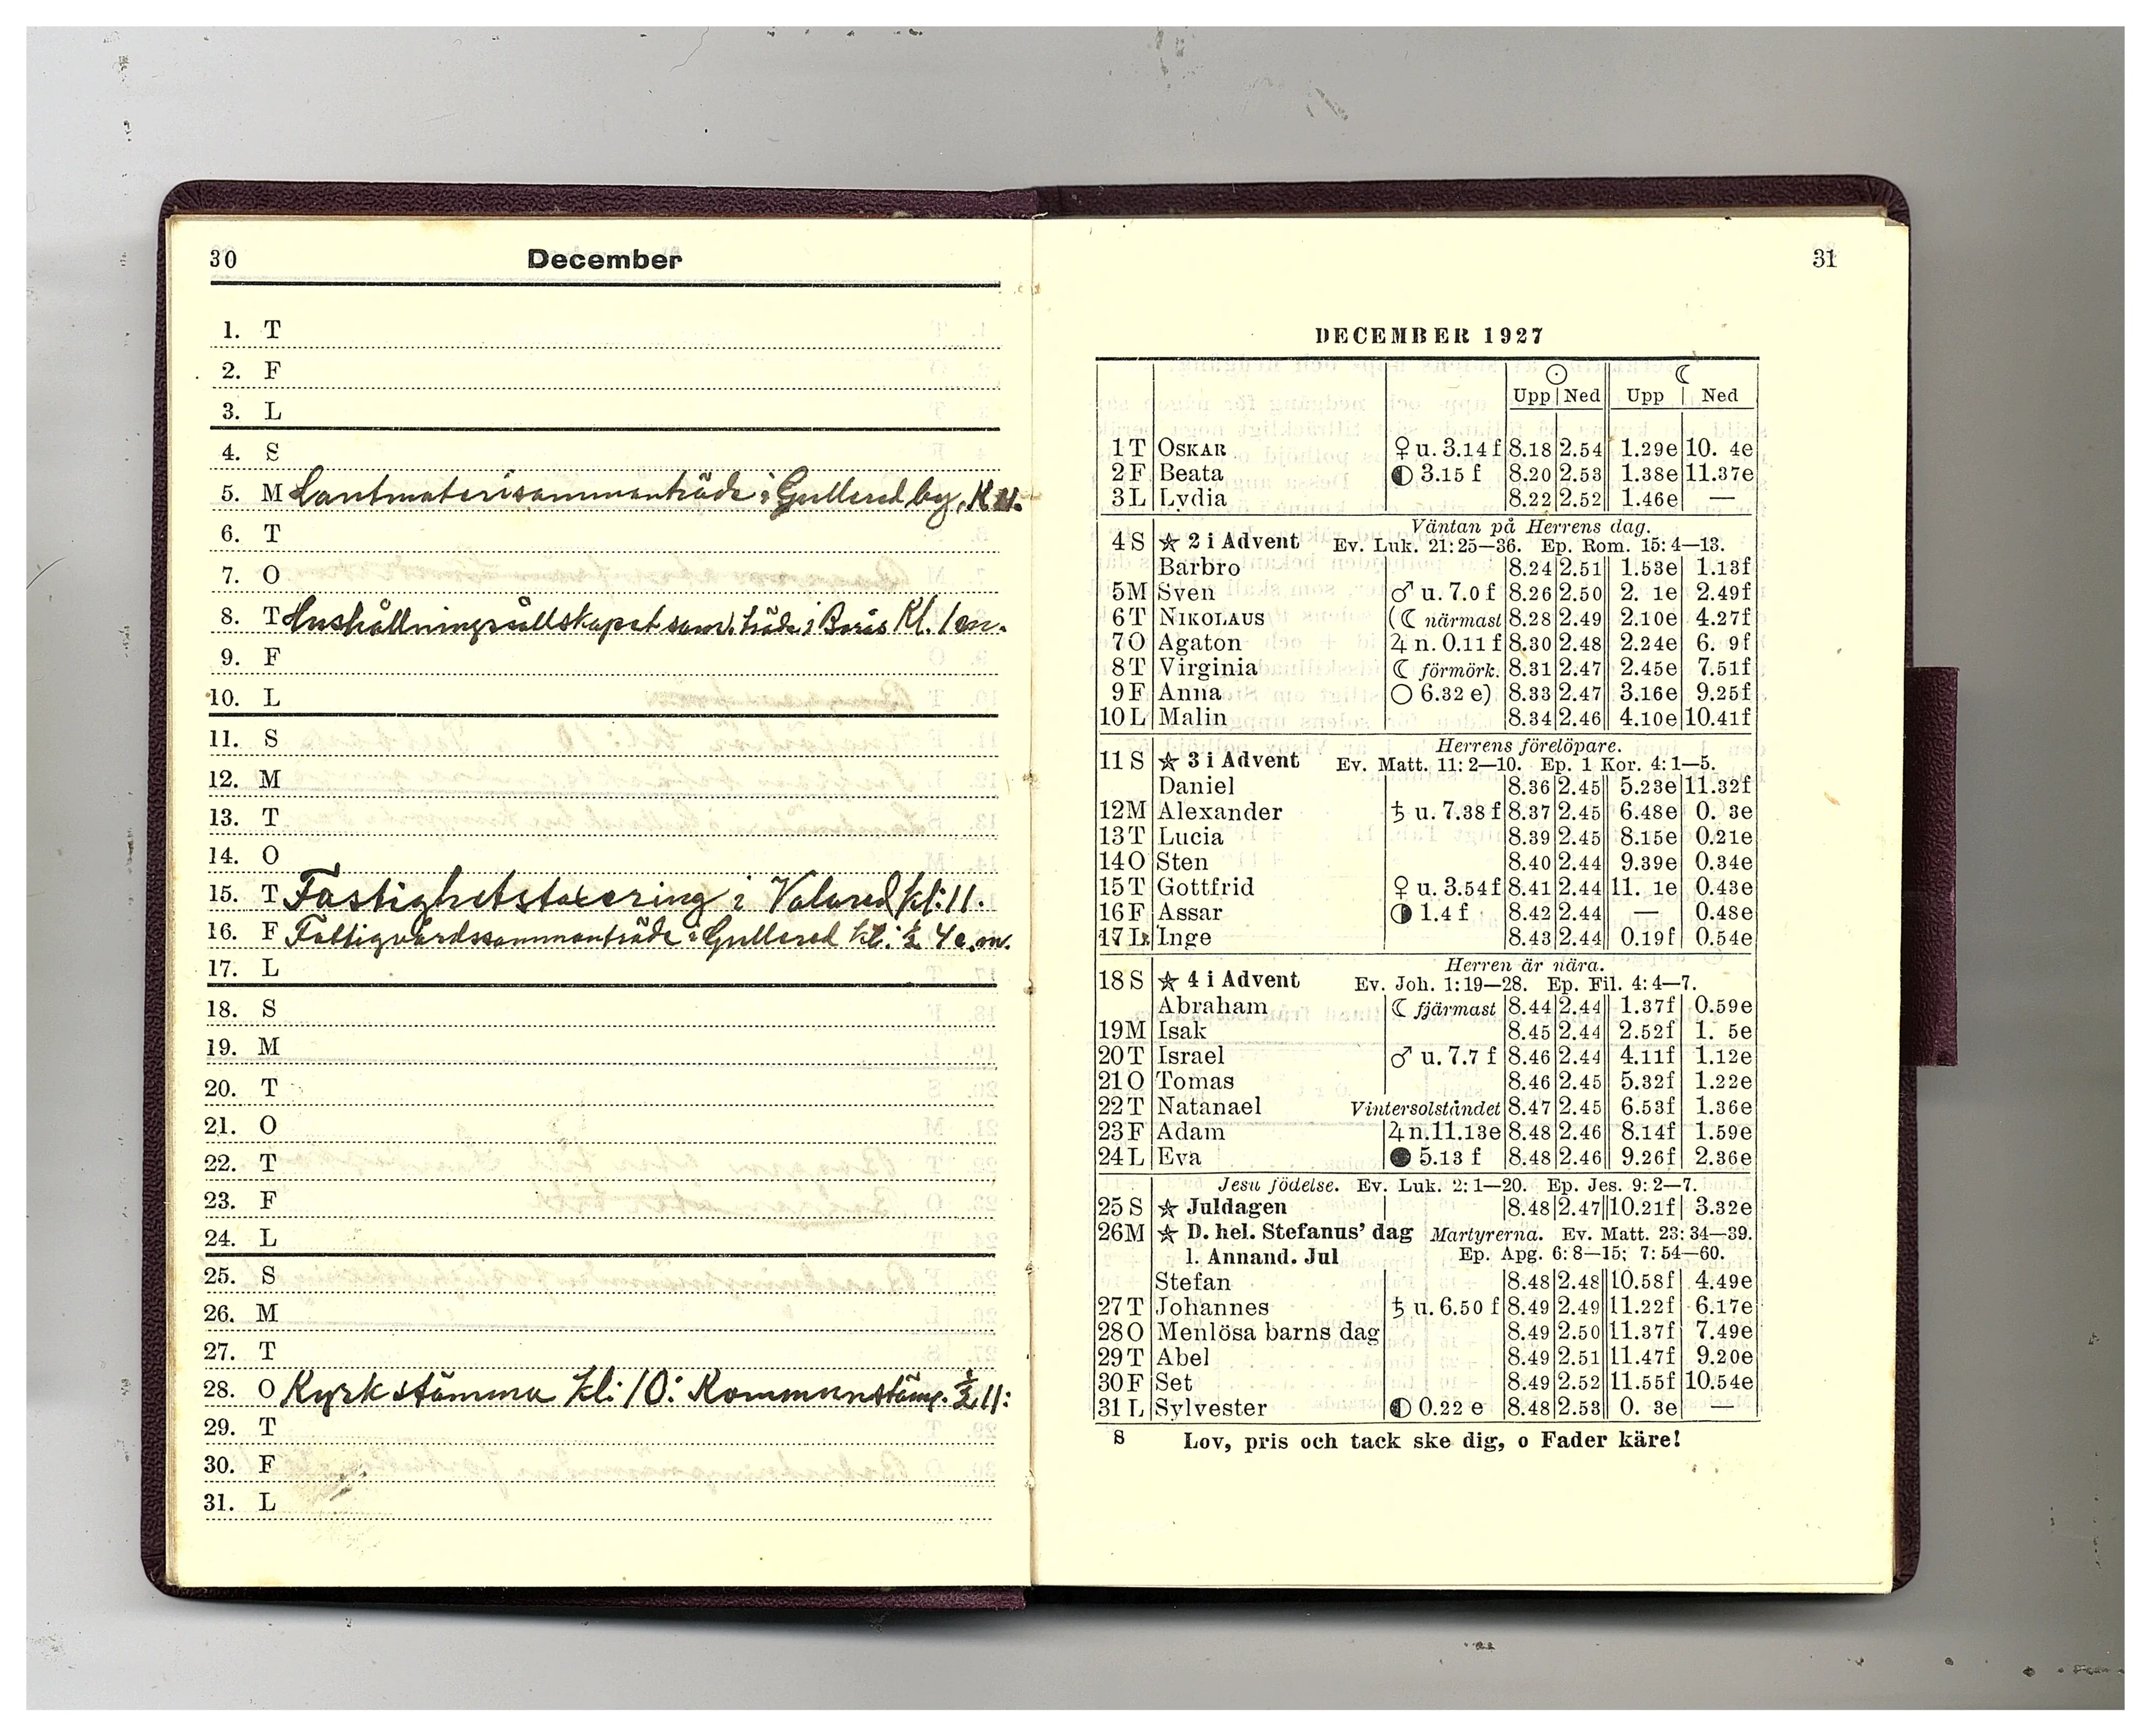 30
December
1. T
2. F
3. L
4. S
5. M Lantmäterisammanträde i Gullered by, Kl 11.
6. T
7. O
8. T Hushållningsällskapet sam.träde i Borås Kl. 1 em.
9. F
10. L
11. S
12. M
13. T
14. O
15. T Fastighetstaxering i Valared kl: 11.
16. F Fattigvårdssammanträde i Gullered kl: ½ 4 e.m.
17. L
18. S
19. M
20. T
21. O
22. T
23. F
24. L
25. S
26. M
27. T
28. O Kyrkstämma kl: 10: Kommunstäm. ½ 11:
29. T
30. F
31. L
31
DECEMBER 1927
☉ ☾
Upp Ned Upp Ned
1 T OSKAR ♀ u. 3.14 f 8.18 2.54 1.29e 10. 4e
2 F Beata ◐ 3.15 f 8.20 2.53 1.38e 11.37e
3 L Lydia 8.22 2.52 1.46e —
Väntan på Herrens dag.
4 S ☆ 2 i Advent Ev. Luk. 21: 25—36. Ep. Rom. 15: 4—13.
Barbro 8.24 2.51 1.53e 1.13f
5 M Sven ♂ u. 7.0 f 8.26 2.50 2. 1e 2.49f
6 T NIKOLAUS (☾ närmast 8.28 2.49 2.10e 4.27f
7 O Agaton ♃ n. 0.11 f 8.30 2.48 2.24e 6. 9f
8 T Virginia ☾ förmörk. 8.31 2.47 2.45e 7.51f
9 F Anna ○ 6.32 e) 8.33 2.47 3.16e 9.25f
10 L Malin 8.34 2.46 4.10e 10.41f
Herrens förelöpare.
11 S ☆ 3 i Advent Ev. Matt. 11: 2—10. Ep. 1 Kor. 4: 1—5.
Daniel 8.36 2.45 5.23e 11.32f
12 M Alexander ♄ u. 7.38 f 8.37 2.45 6.48e 0. 3e
13 T Lucia 8.39 2.45 8.15e 0.21e
14 O Sten 8.40 2.44 9.39e 0.34e
15 T Gottfrid ♀ u. 3.54 f 8.41 2.44 11. 1e 0.43e
16 F Assar ◑ 1.4 f 8.42 2.44 — 0.48e
17 L Inge 8.43 2.44 0.19f 0.54e
Herren är nära.
18 S ☆ 4 i Advent Ev. Joh. 1: 19—28. Ep. Fil. 4: 4—7.
Abraham ☾ fjärmast 8.44 2.44 1.37f 0.59e
19 M Isak 8.45 2.44 2.52f 1. 5e
20 T Israel ♂ u. 7.7 f 8.46 2.44 4.11f 1.12e
21 O Tomas 8.46 2.45 5.32f 1.22e
22 T Natanael Vintersolståndet 8.47 2.45 6.53f 1.36e
23 F Adam ♃ n. 11.13e 8.48 2.46 8.14f 1.59e
24 L Eva ● 5.13 f 8.48 2.46 9.26f 2.36e
Jesu födelse. Ev. Luk. 2: 1—20. Ep. Jes. 9: 2—7.
25 S ☆ Juldagen 8.48 2.47 10.21f 3.32e
26 M ☆ D. hel. Stefanus' dag Martyrerna. Ev. Matt. 23: 34—39.
l. Annand. Jul Ep. Apg. 6: 8—15; 7: 54—60.
Stefan 8.48 2.48 10.58f 4.49e
27 T Johannes ♄ u. 6.50 f 8.49 2.49 11.22f 6.17e
28 O Menlösa barns dag 8.49 2.50 11.37f 7.49e
29 T Abel 8.49 2.51 11.47f 9.20e
30 F Set 8.49 2.52 11.55f 10.54e
31 L Sylvester ◐ 0.22 e 8.48 2.53 0. 3e —
8 Lov, pris och tack ske dig, o Fader käre!